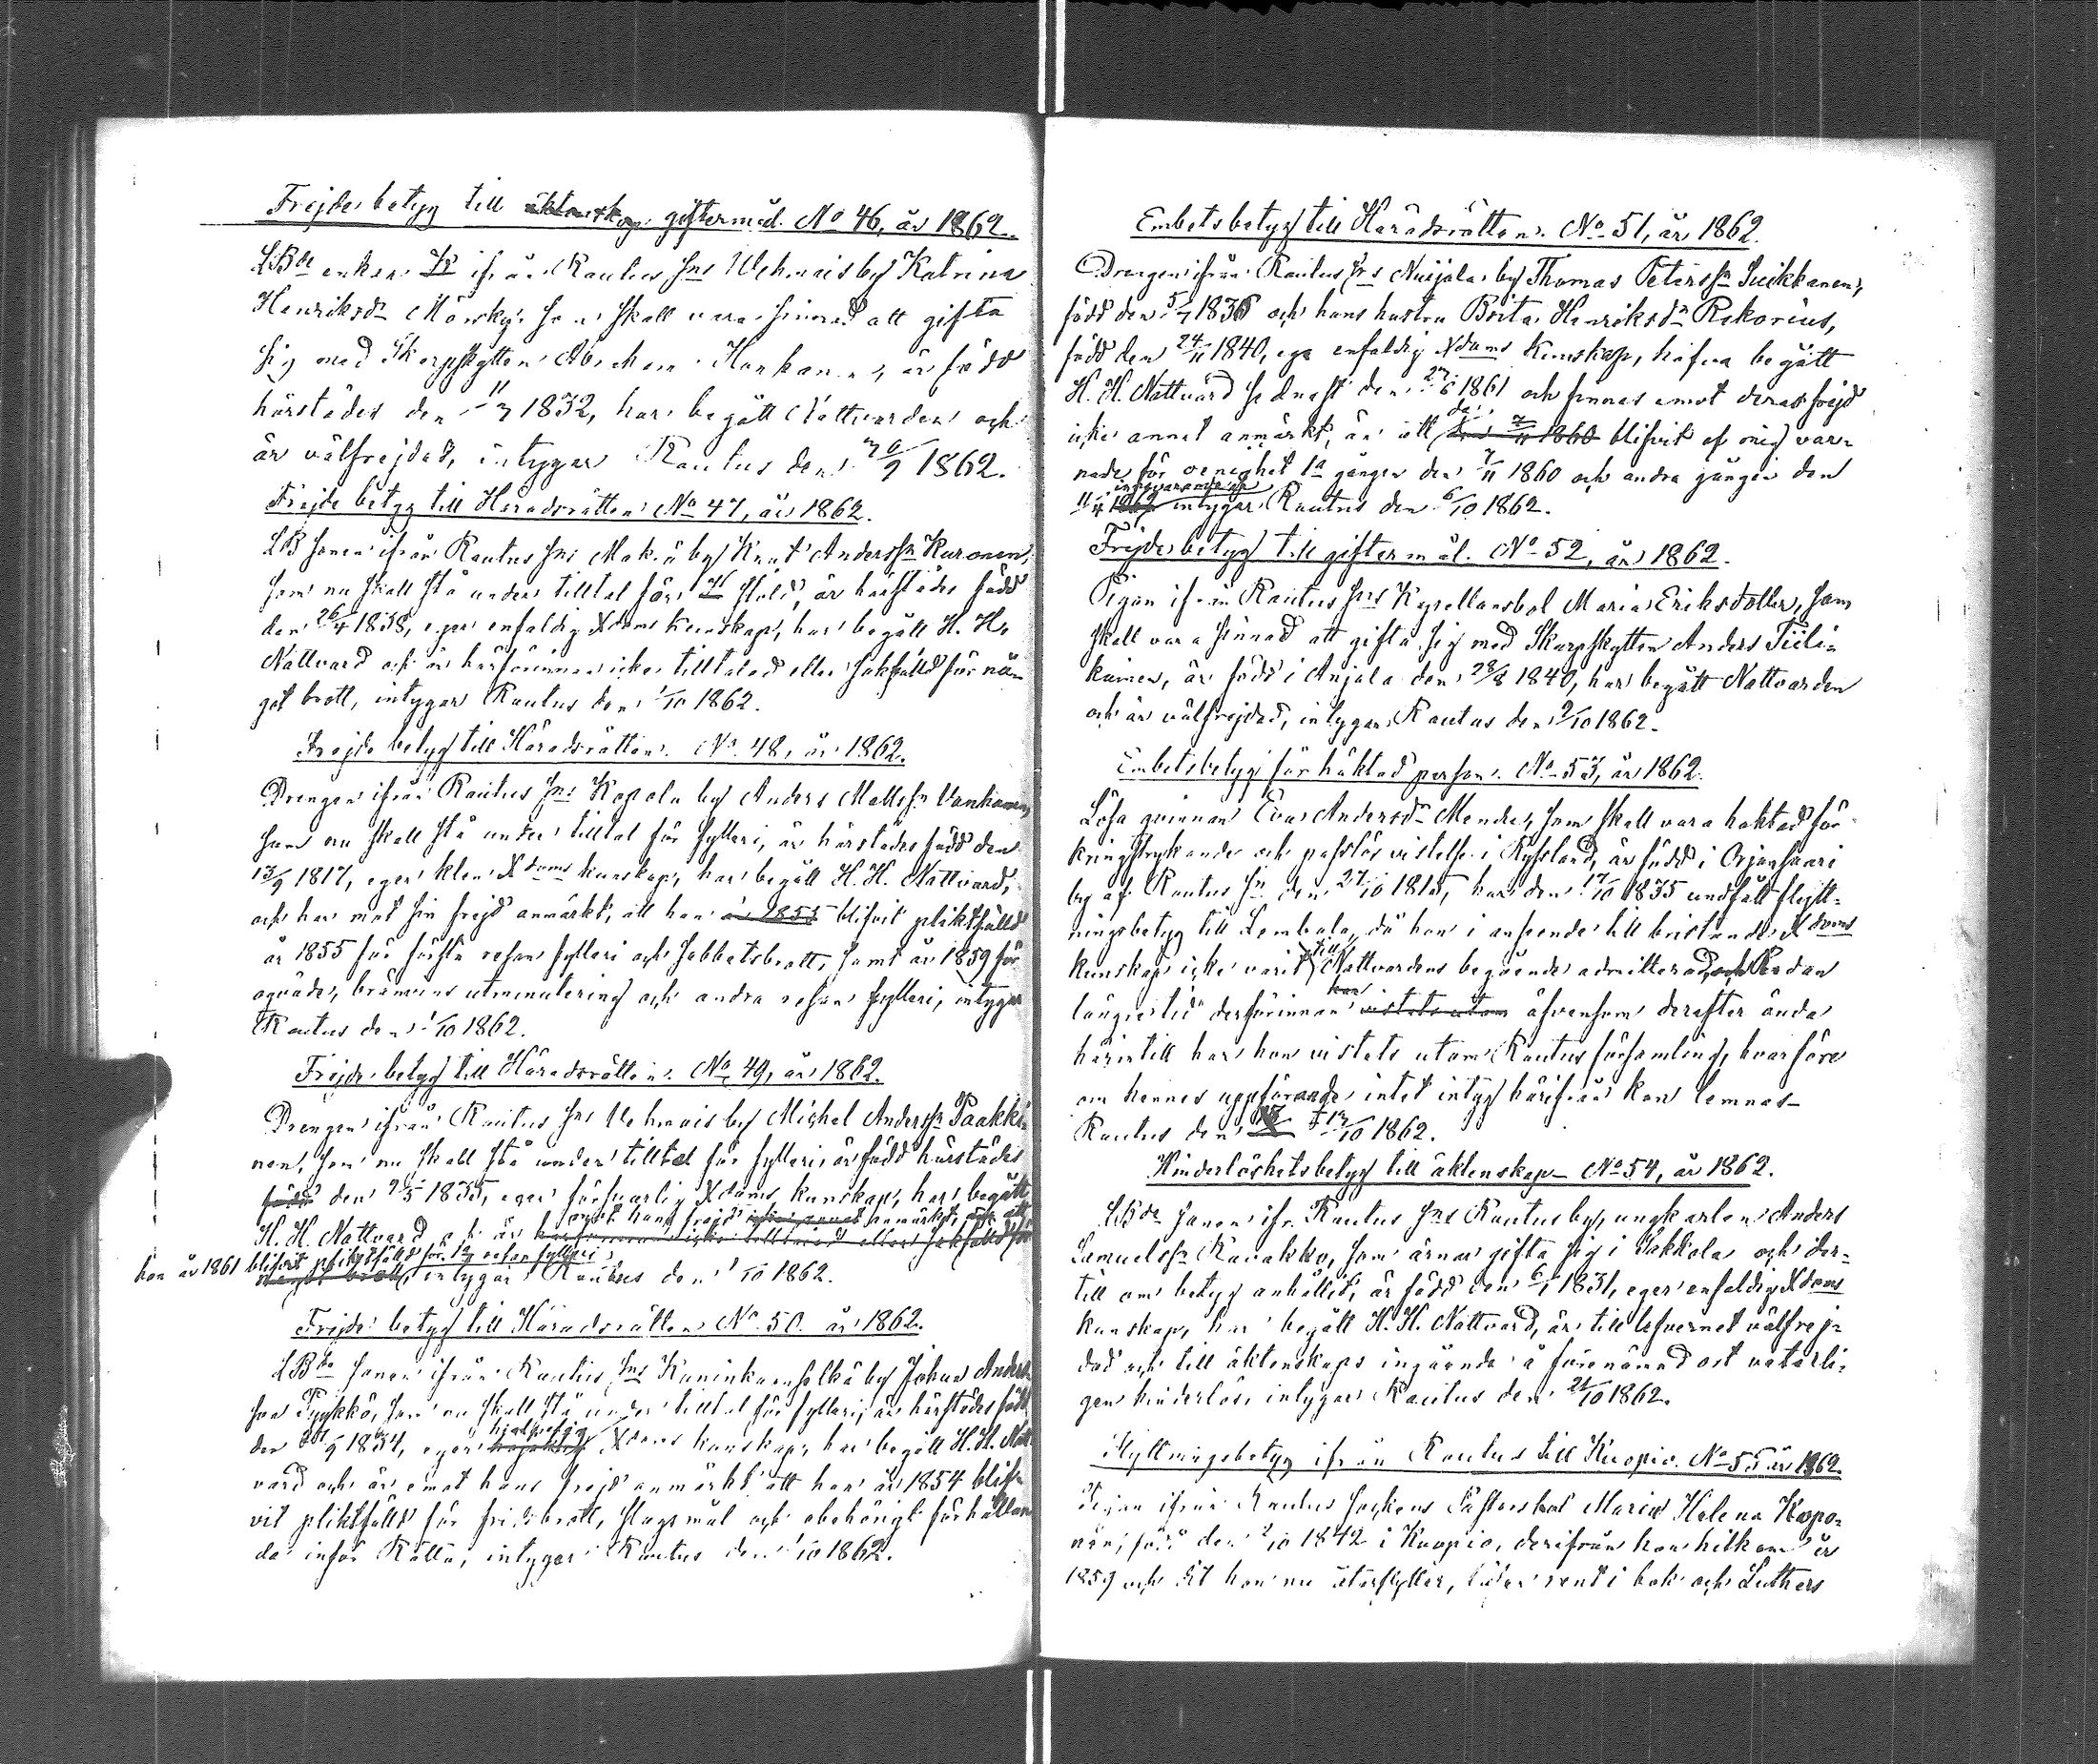 Frejde betyg till äktenskap giftermål. No 46, år 1862.
LBde enkan ifrån Rautus Sns Wehmais by Katrina
Henriksdr Mörsky, som skall vara sinnad att gifta
sig med Skarpskytten Abraham Honkanen, är född
härstädes den 11/7 1832, har begått Nattvarden och
är välfrejdad, intygar Rautus den 30/9 1862.
Frejde betyg till Häradsrätten No 47, år 1862.
LB sonen ifrån Rautus Sns Makiä by Knut Anderssn Kuronen,
som nu skall stå under tilltal för stöld, är härstädes född
den 26/4 1838, eger enfaldig Xdoms kunskap, har begått H. H.
Nattvard och är härförinnan icke tilltalad eller sakfälld för nå-
got brott, intygar Rautus den 1/10 1862.
Frejde betyg till Häradsrätten. No 48, år 1862.
Drengen ifrån Rautus Sns Kopola by Anders Mattssn Vanhanen,
som nu skall stå under tilltal för fylleri, är härstädes född den
13/9 1817, eger klen Xdoms kunskap, har begått H. H. Nattvard,
och har mot sin frejd anmärkt, att han år 1855 blifvit pliktfälld
år 1855 för första resan fylleri och sabbatsbrott, samt år 1859 för
oqväde, bränvins utminutering och andra resan fylleri, intygar
Rautus den 1/10 1862.
Frejde betyg till Häradsrätten. No 49, år 1862.
Drengen ifrån Rautus Sns Wehmais by Michel Anderssn Paakki-
nen, som nu skall stå under tilltal för fylleri, är född härstädes
född den 9/5 1835, eger försvarlig Xdoms kunskap, har begått
emot hans frejd icke annat anmärkt, än att
H. H. Nattvard och är härförinnan icke tilltalad eller sakfälld för
han år 1861 blifvit pliktfälld för 1a resan fylleri
något brott, intygar Rautus den 1/10 1862.
Frejde betyg till Häradsrätten No 50. år 1862.
LBde sonen ifrån Rautus Sns Kuninkaanselkä by Johan Anders-
son Pyykkö, som nu skall stå under tilltal för fylleri, är härstädes född
hjelpelig
den 1834, eger Xdoms kunskap, har begått H. H. Natt-
vard och är emot hans frejd anmärkt att han år 1854 blif-
vit pliktfälld för fridsbrott, slagsmål och obehörigt förhållan-
de inför Rätta, intygar Rautus den 1/10 1862.
Embetsbetyg till Häradsrätten. No 51, år 1862.
Drengen ifrån Rautus Sns Nuijala by Thomas Peterssn Suikkanen,
född den 5/7 1836 och hans hustru Brita Henriksdr Rekorius,
född den 24/11 1840, ega enfaldig Xdoms kunskap, hafva begått
H. H. Nattvard sednast den 1861 och finnes emot deras frejd
de
icke annat anmärkt, än att den 7/11 1860 blifvit af mig var-
nade för oenighet 1a gången den 7/11 1860 och andra gången den
innevarande år
11/4 1862 intygar Rautus den 6/10 1862.
Frejde betyg till giftermål. No 52, år 1862.
Pigan ifrån Rautus Sns Kapellansbol Maria Eriksdotter, som
skall vara sinnad att gifta sig med Skarpskytten Anders Tiili-
kainen, är född i Anjala den 28/8 1840, har begått Nattvarden
och är välfrejdad, intygar Rautus den 9/10 1862.
Embetsbetyg för häktad person. No 53, år 1862.
Lösa qvinnan Eva Andersdr Mendre, som skall vara häktad för
kringstrykande och passlös vistelse i Ryssland, är född i Orjansaari
by af Rautus Sn den 27/10 1815, har den 17/10 1835 undfått flytt-
ningsbetyg till Lembala, då hon i anseende till bristande Xdoms
till
kunskap icke varit Nattvardens begående admitterad, och Redan
har
längre tid derförinnan vistats utom äfvensom derefter ända
härintill har hon vistats utom Rautus församling, hvarföre
om hennes uppförande intet intyg härifrån kan lemnas.
Rautus den 13/10 1862.
Hinderlöshetsbetyg till äktenskap No 54, år 1862.
LBde sonen ifr. Rautus Sns Rautus by, ungkarlen Anders
Samuelssn Rauakko, som ärnar gifta sig i Sakkola och der-
till om betyg anhållit, är född den 6/1 1831, eger enfaldig Xdoms
kunskap, har begått H. H. Nattvard, är till lefvernet välfrej-
dad och till äktenskaps ingående å förenämnd ort veterli-
gen hinderlös, intygar Rautus den 21/10 1862.
Flyttningsbetyg ifrån Rautus till Kuopio. No 55 år 1862.
Pigan ifrån Rautus Sockens Pastorsbol Maria Helena Koopo-
nen, född den 2/10 1842 i Kuopio, derifrån hon hitkom år
1859 och dit hon nu återflyttar, läser rent i bok och Luthers